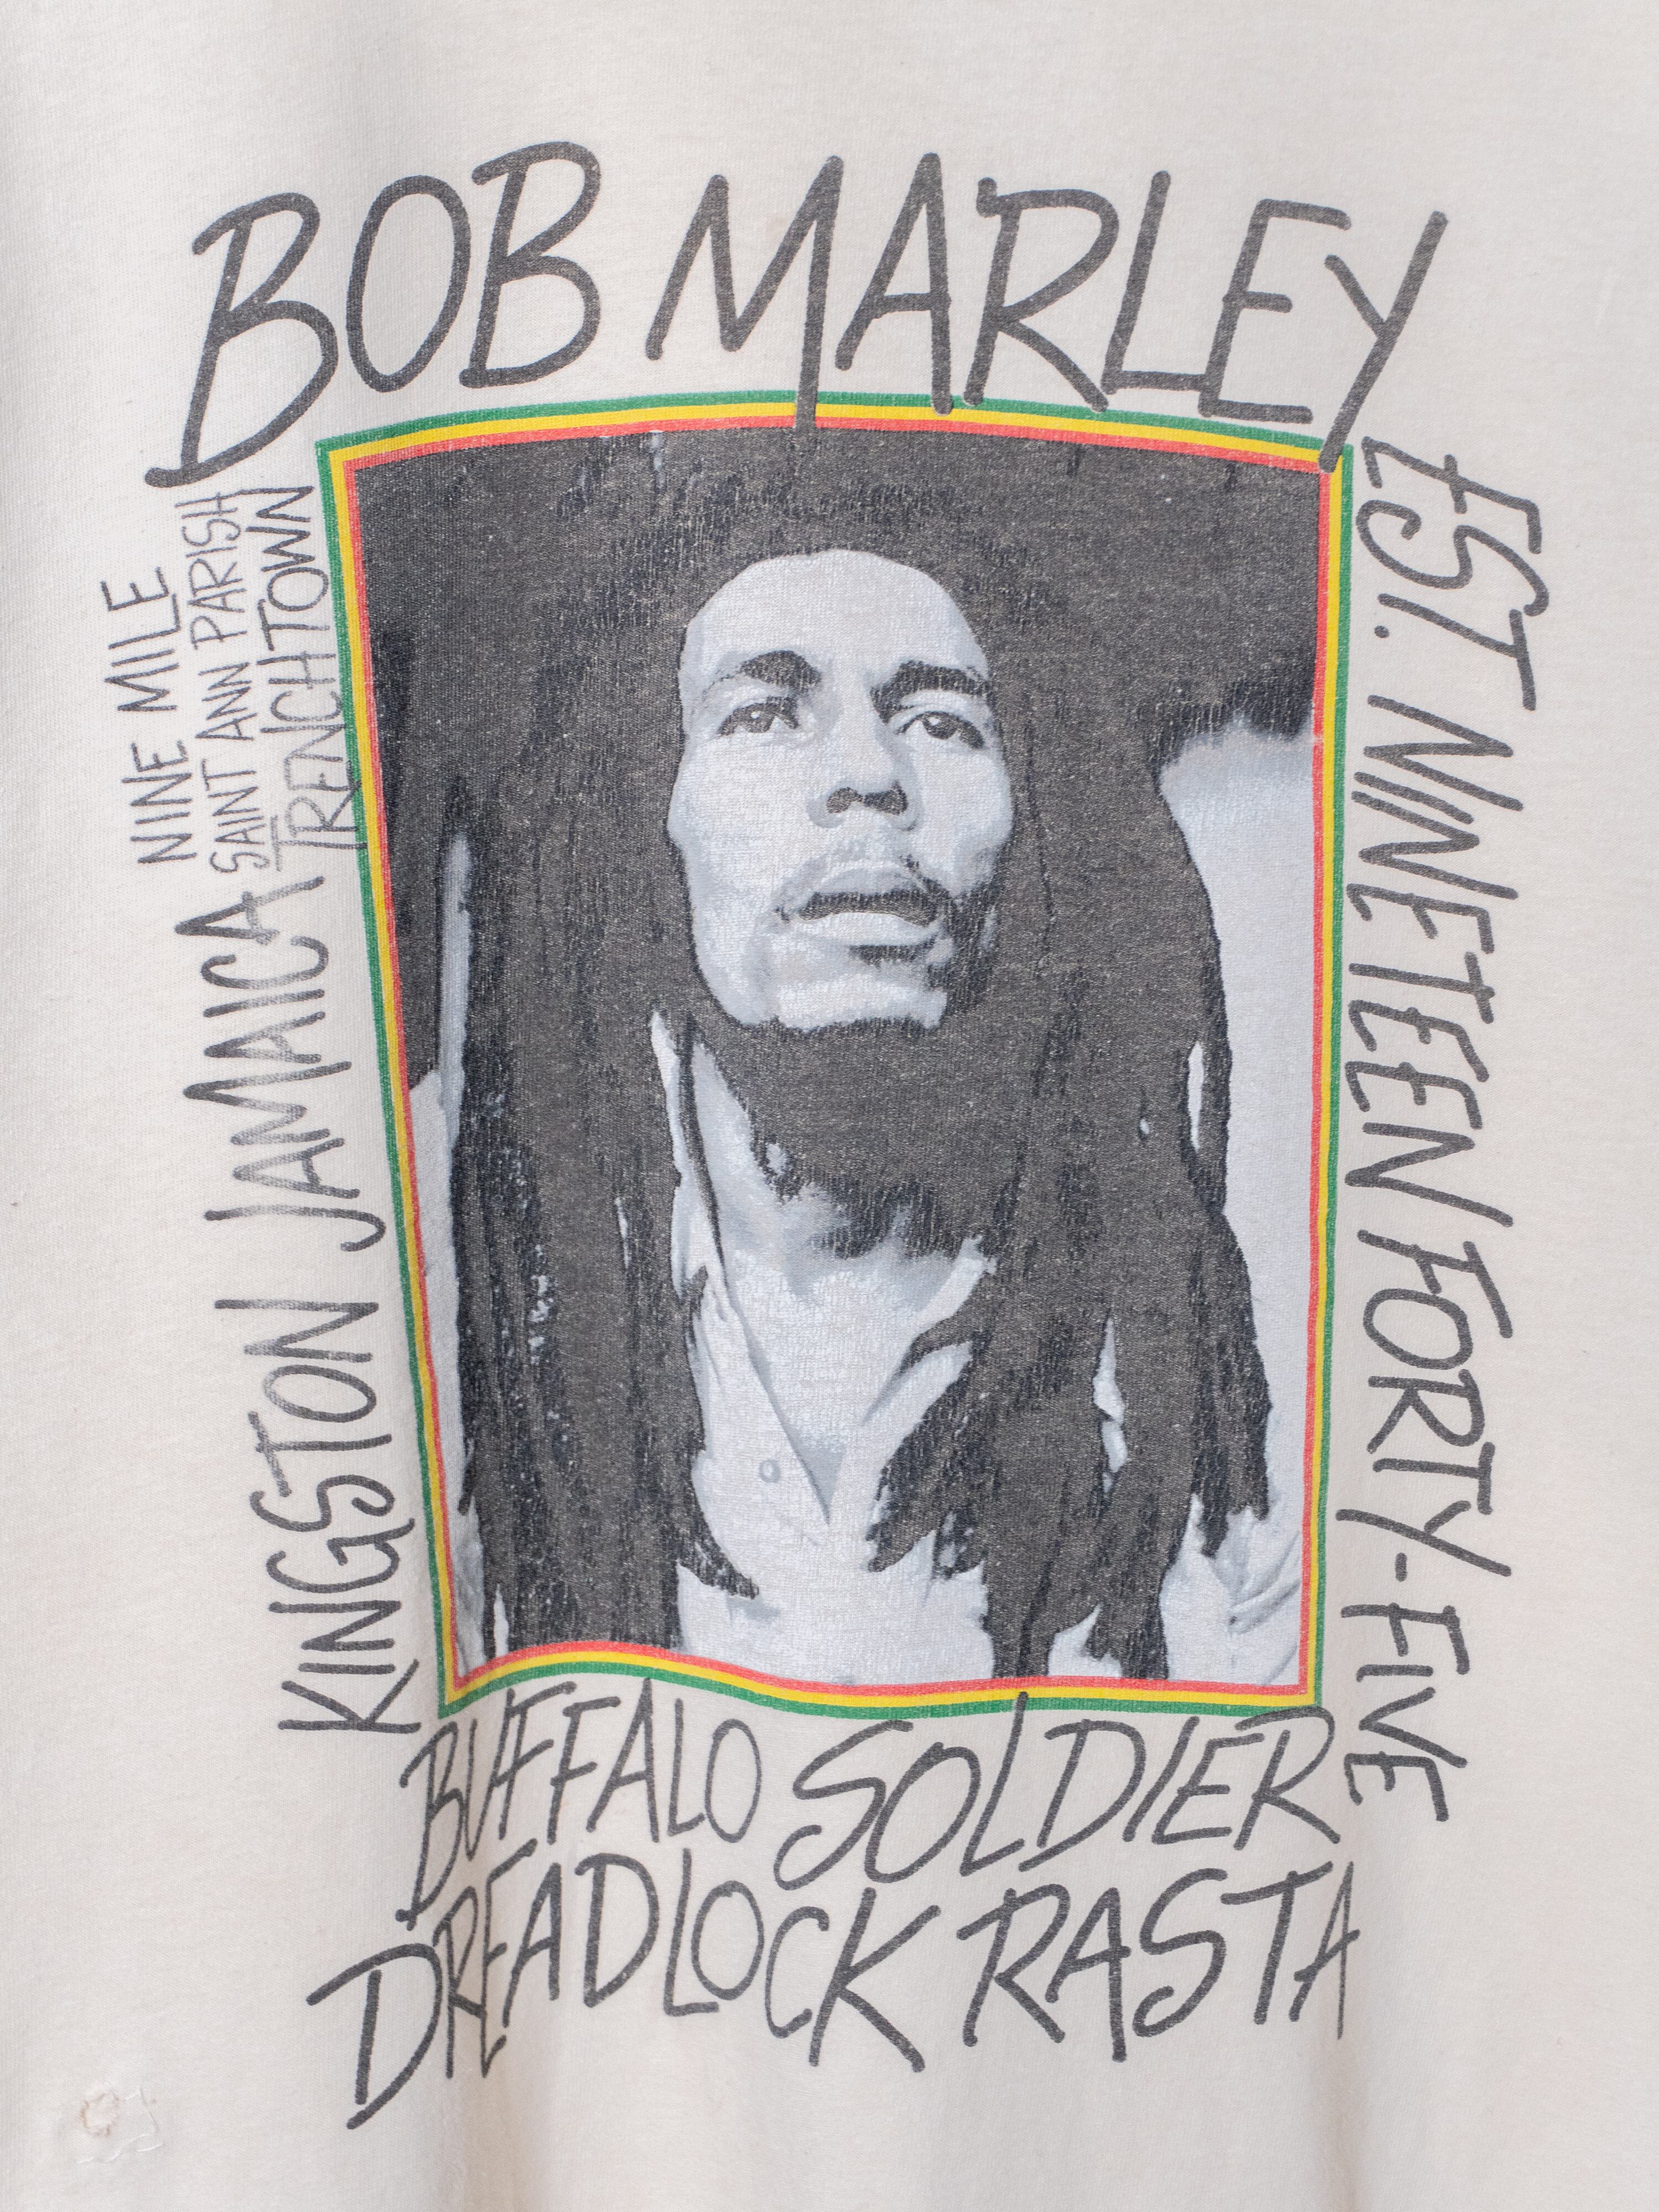 BOB MARLEY
NINE MILE
SAINT ANN PARISH
TRENCHTOWN
KINGSTON JAMAICA
EST. NINETEEN FORTY-FIVE
BUFFALO SOLDIER
DREADLOCK RASTA